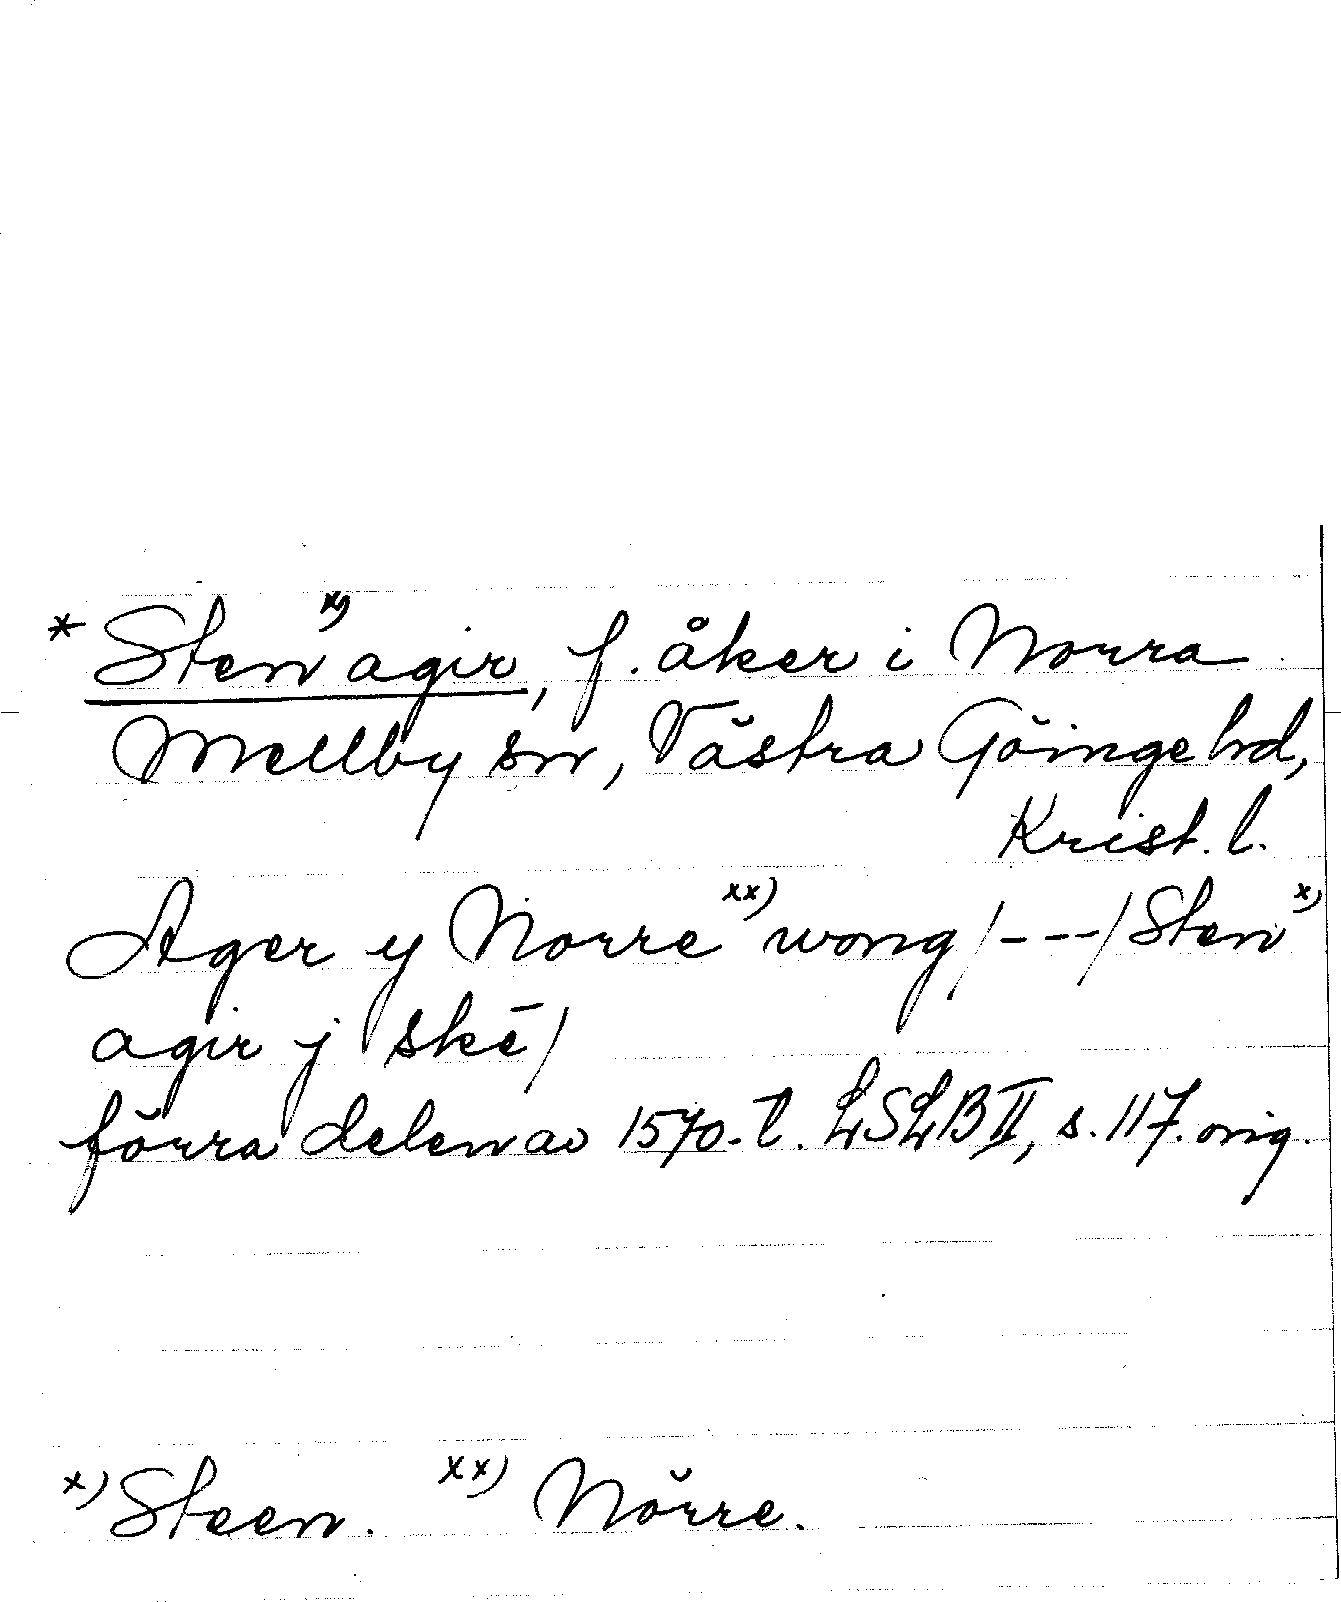 * Sten x) agir, f. åker i Norra
Mellby sn, Västra Göinge hd,
Krist. l.
Ager y Norre xx) wong /---/ Sten x)
agir j skē/
förra delen av 1570-t. LSLB II, s. 117. orig.
x) Steen. xx) Nörre.